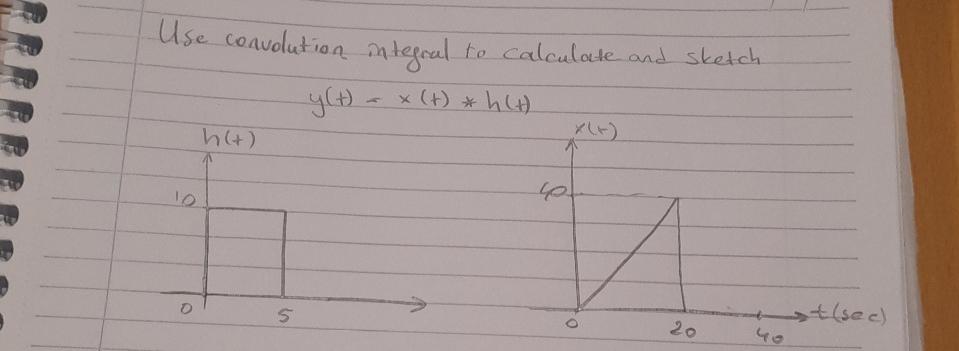 Use convolution integral to calculate and sketch
y(t) = x(t) * h(t)
h(t)
10
0
5
x(t)
40
0
20
40
t(sec)